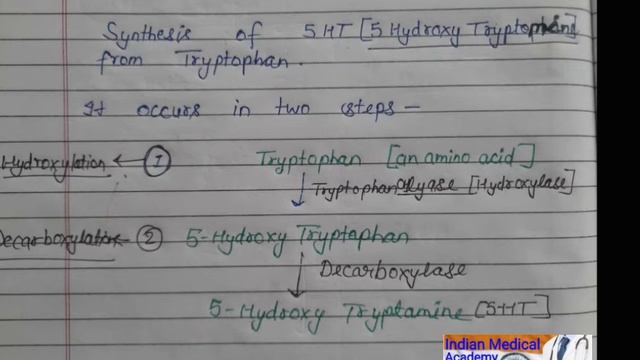 Synthesis of 5HT [5 Hydroxy Tryptamine]
from Tryptophan.
It occurs in two steps –
Hydroxylation ← ① Tryptophan [an amino acid]
↓ Tryptophan [Hydroxylase]
Decarboxylation ← ② 5-Hydroxy Tryptophan
↓ Decarboxylase
5-Hydroxy Tryptamine [5-HT]
Indian Medical
Academy